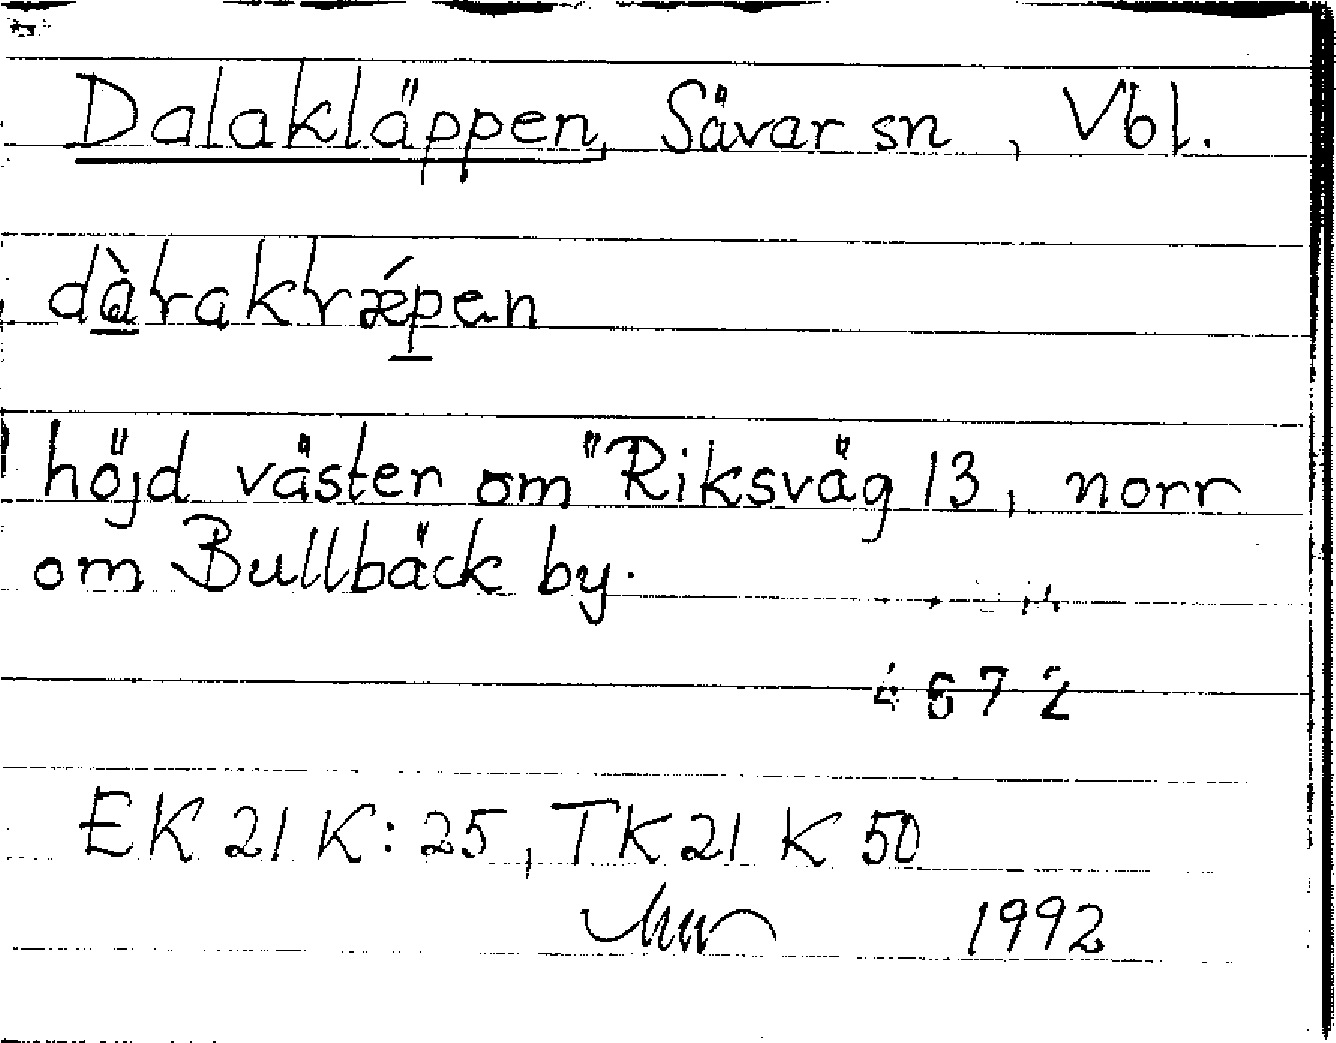 Dalakläppen, Sävar sn, Vbl.
dàrakrǽpen
höjd väster om "Riksväg 13, norr
om Bullbäck by.
672
EK 21 K: 25, TK 21 K 50
1992